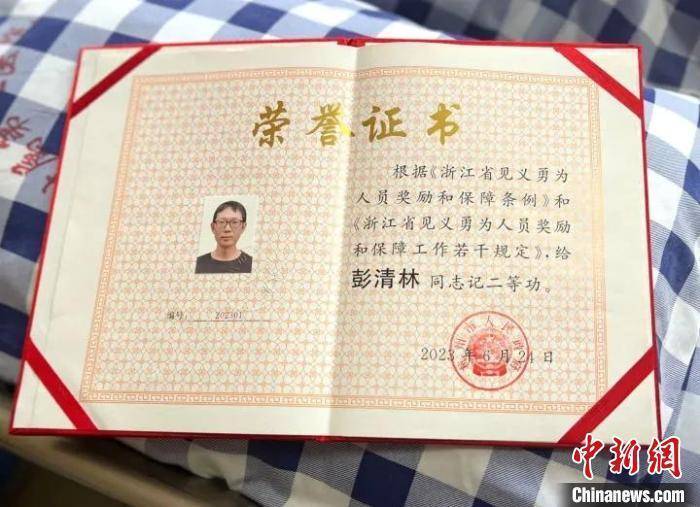 荣誉证书
根据《浙江省见义勇为
人员奖励和保障条例》和
《浙江省见义勇为人员奖励
和保障工作若干规定》，给
彭清林 同志记二等功。
编号： 202301
2023 年 6 月 24 日
中新网
Chinanews.com